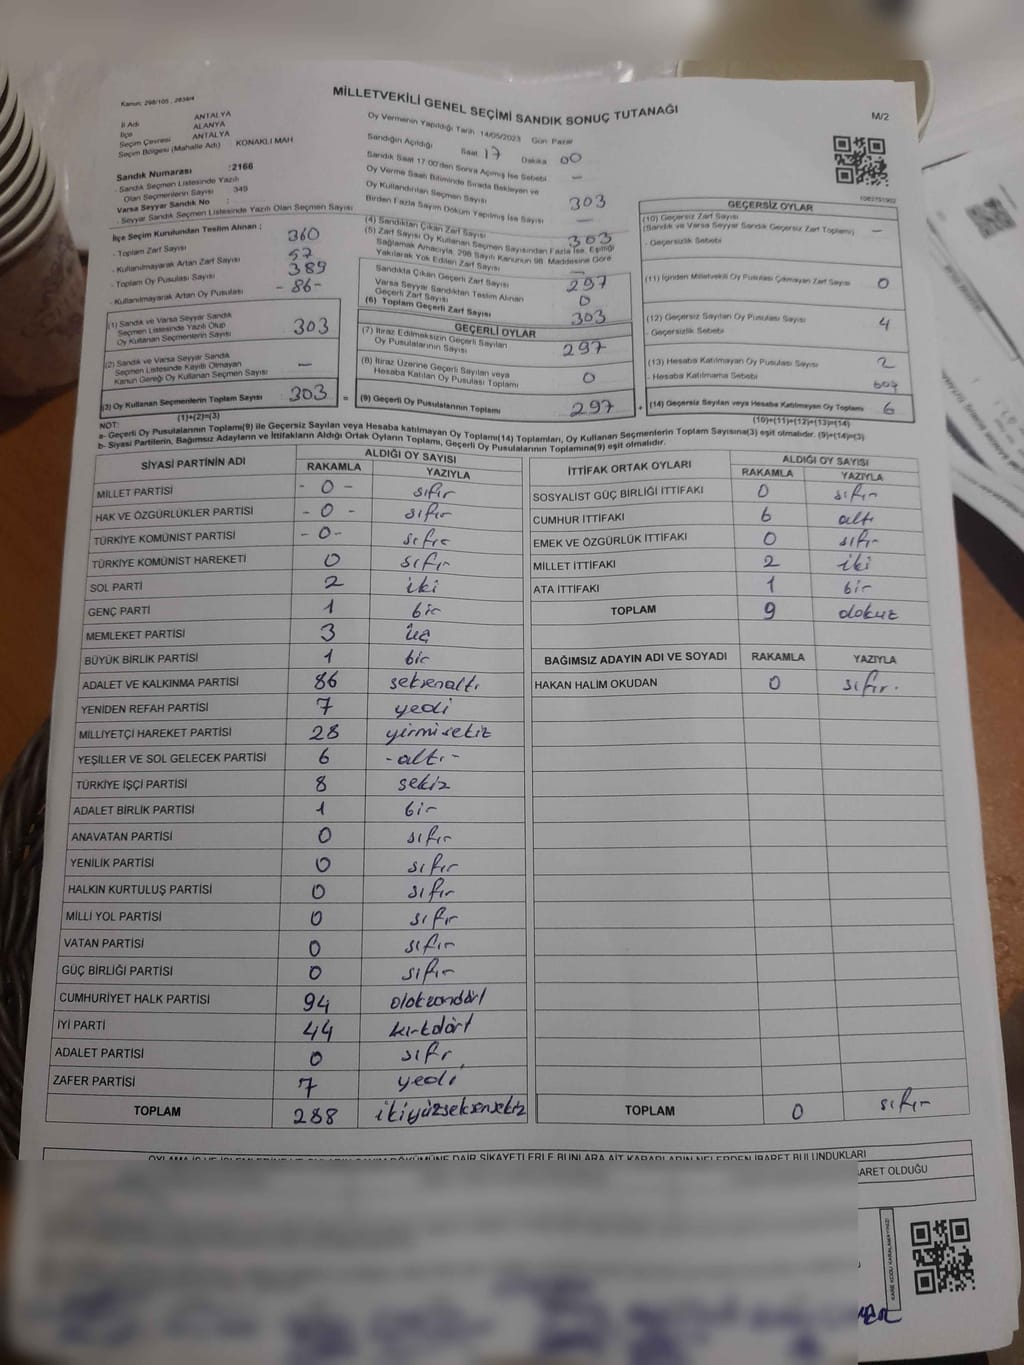 Kanun: 298/105, 2839/4
MİLLETVEKİLİ GENEL SEÇİMİ SANDIK SONUÇ TUTANAĞI
M/2
İl Adı ANTALYA
İlçe ALANYA
Seçim Çevresi ANTALYA
Seçim Bölgesi (Mahalle Adı) KONAKLI MAH
Sandık Numarası : 2166
- Sandık Seçmen Listesinde Yazılı
Olan Seçmenlerin Sayısı : 349
Varsa Seyyar Sandık No :
- Seyyar Sandık Seçmen Listesinde Yazılı Olan Seçmen Sayısı
Oy Vermenin Yapıldığı Tarih 14/05/2023 Gün Pazar
Sandığın Açıldığı Saat 17 Dakika 00
Sandık Saat 17:00'den Sonra Açılmış İse Sebebi —
Oy Verme Saati Bitiminde Sırada Bekleyen ve
Oy Kullandırılan Seçmen Sayısı 303
Birden Fazla Sayım Döküm Yapılmış İse Sayısı —
İlçe Seçim Kurulundan Teslim Alınan ;
- Toplam Zarf Sayısı 360
- Kullanılmayarak Artan Zarf Sayısı 57
- Toplam Oy Pusulası Sayısı 389
- Kullanılmayarak Artan Oy Pusulası - 86 -
(1) Sandık ve Varsa Seyyar Sandık
Seçmen Listesinde Yazılı Olup
Oy Kullanan Seçmenlerin Sayısı 303
(2) Sandık ve Varsa Seyyar Sandık
Seçmen Listesinde Kayıtlı Olmayan
Kanun Gereği Oy Kullanan Seçmen Sayısı —
(3) Oy Kullanan Seçmenlerin Toplam Sayısı 303 =
(1)+(2)=(3)
(4) Sandıktan Çıkan Zarf Sayısı 303
(5) Zarf Sayısı Oy Kullanan Seçmen Sayısından Fazla İse, Eşitliği
Sağlamak Amacıyla, 298 Sayılı Kanunun 98. Maddesine Göre
Yakılarak Yok Edilen Zarf Sayısı —
Sandıkta Çıkan Geçerli Zarf Sayısı 297
Varsa Seyyar Sandıktan Teslim Alınan
Geçerli Zarf Sayısı 0
(6) Toplam Geçerli Zarf Sayısı 303
GEÇERLİ OYLAR
(7) İtiraz Edilmeksizin Geçerli Sayılan
Oy Pusulalarının Sayısı 297
(8) İtiraz Üzerine Geçerli Sayılan veya
Hesaba Katılan Oy Pusulası Toplamı 0
(9) Geçerli Oy Pusulalarının Toplamı 297 +
1083751902
GEÇERSİZ OYLAR
(10) Geçersiz Zarf Sayısı
(Sandık ve Varsa Seyyar Sandık Geçersiz Zarf Toplamı) —
- Geçersizlik Sebebi
(11) İçinden Milletvekili Oy Pusulası Çıkmayan Zarf Sayısı 0
(12) Geçersiz Sayılan Oy Pusulası Sayısı 4
- Geçersizlik Sebebi
(13) Hesaba Katılmayan Oy Pusulası Sayısı 2
- Hesaba Katılmama Sebebi boş
(14) Geçersiz Sayılan veya Hesaba Katılmayan Oy Toplamı 6
(10)+(11)+(12)+(13)=(14)
NOT:
a- Geçerli Oy Pusulalarının Toplamı(9) ile Geçersiz Sayılan veya Hesaba katılmayan Oy Toplamı(14) Toplamları, Oy Kullanan Seçmenlerin Toplam Sayısına(3) eşit olmalıdır. (9)+(14)=(3)
b- Siyasi Partilerin, Bağımsız Adayların ve İttifakların Aldığı Ortak Oyların Toplamı, Geçerli Oy Pusulalarının Toplamına(9) eşit olmalıdır.
SİYASİ PARTİNİN ADI ALDIĞI OY SAYISI
RAKAMLA YAZIYLA
MİLLET PARTİSİ - 0 - sıfır
HAK VE ÖZGÜRLÜKLER PARTİSİ - 0 - sıfır
TÜRKİYE KOMÜNİST PARTİSİ - 0 - sıfır
TÜRKİYE KOMÜNİST HAREKETİ 0 sıfır
SOL PARTİ 2 iki
GENÇ PARTİ 1 bir
MEMLEKET PARTİSİ 3 üç
BÜYÜK BİRLİK PARTİSİ 1 bir
ADALET VE KALKINMA PARTİSİ 86 seksenaltı
YENİDEN REFAH PARTİSİ 7 yedi
MİLLİYETÇİ HAREKET PARTİSİ 28 yirmisekiz
YEŞİLLER VE SOL GELECEK PARTİSİ 6 - altı -
TÜRKİYE İŞÇİ PARTİSİ 8 sekiz
ADALET BİRLİK PARTİSİ 1 bir
ANAVATAN PARTİSİ 0 sıfır
YENİLİK PARTİSİ 0 sıfır
HALKIN KURTULUŞ PARTİSİ 0 sıfır
MİLLİ YOL PARTİSİ 0 sıfır
VATAN PARTİSİ 0 sıfır
GÜÇ BİRLİĞİ PARTİSİ 0 sıfır
CUMHURİYET HALK PARTİSİ 94 doksandört
İYİ PARTİ 44 kırkdört
ADALET PARTİSİ 0 sıfır
ZAFER PARTİSİ 7 yedi
TOPLAM 288 ikiyüzseksensekiz
İTTİFAK ORTAK OYLARI ALDIĞI OY SAYISI
RAKAMLA YAZIYLA
SOSYALİST GÜÇ BİRLİĞİ İTTİFAKI 0 sıfır
CUMHUR İTTİFAKI 6 altı
EMEK VE ÖZGÜRLÜK İTTİFAKI 0 sıfır
MİLLET İTTİFAKI 2 iki
ATA İTTİFAKI 1 bir
TOPLAM 9 dokuz
BAĞIMSIZ ADAYIN ADI VE SOYADI RAKAMLA YAZIYLA
HAKAN HALİM OKUDAN 0 sıfır.
TOPLAM 0 sıfır
BARET OLDUĞU
KARE KODU KARALAMAYINIZ!